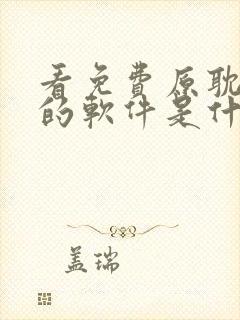 看免費原耽
的軟件是什
盖瑞